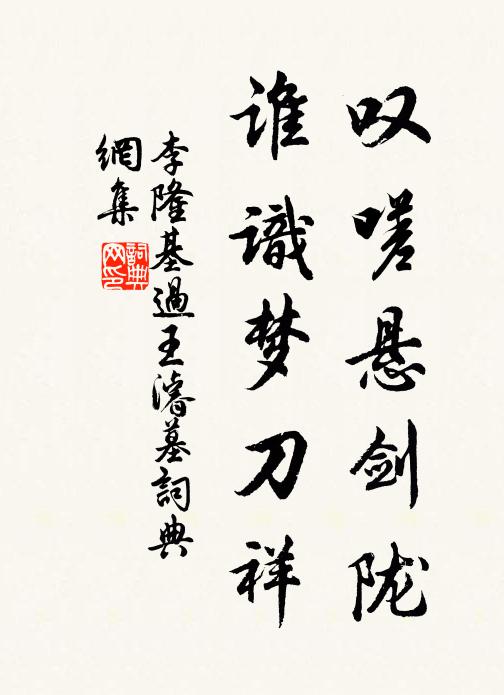 叹嗟悬剑陇
谁識梦刀祥
李隆基過王濬墓詞典
網集
詞典
网印